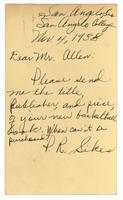 San Angelo, Tex
San Angelo College
Nov. 4, 1938
Dear Mr. Allen:
Please send
me the title,
publisher, and price
of your new basketball
book. When can it be
purchased?
P. R. Sikes